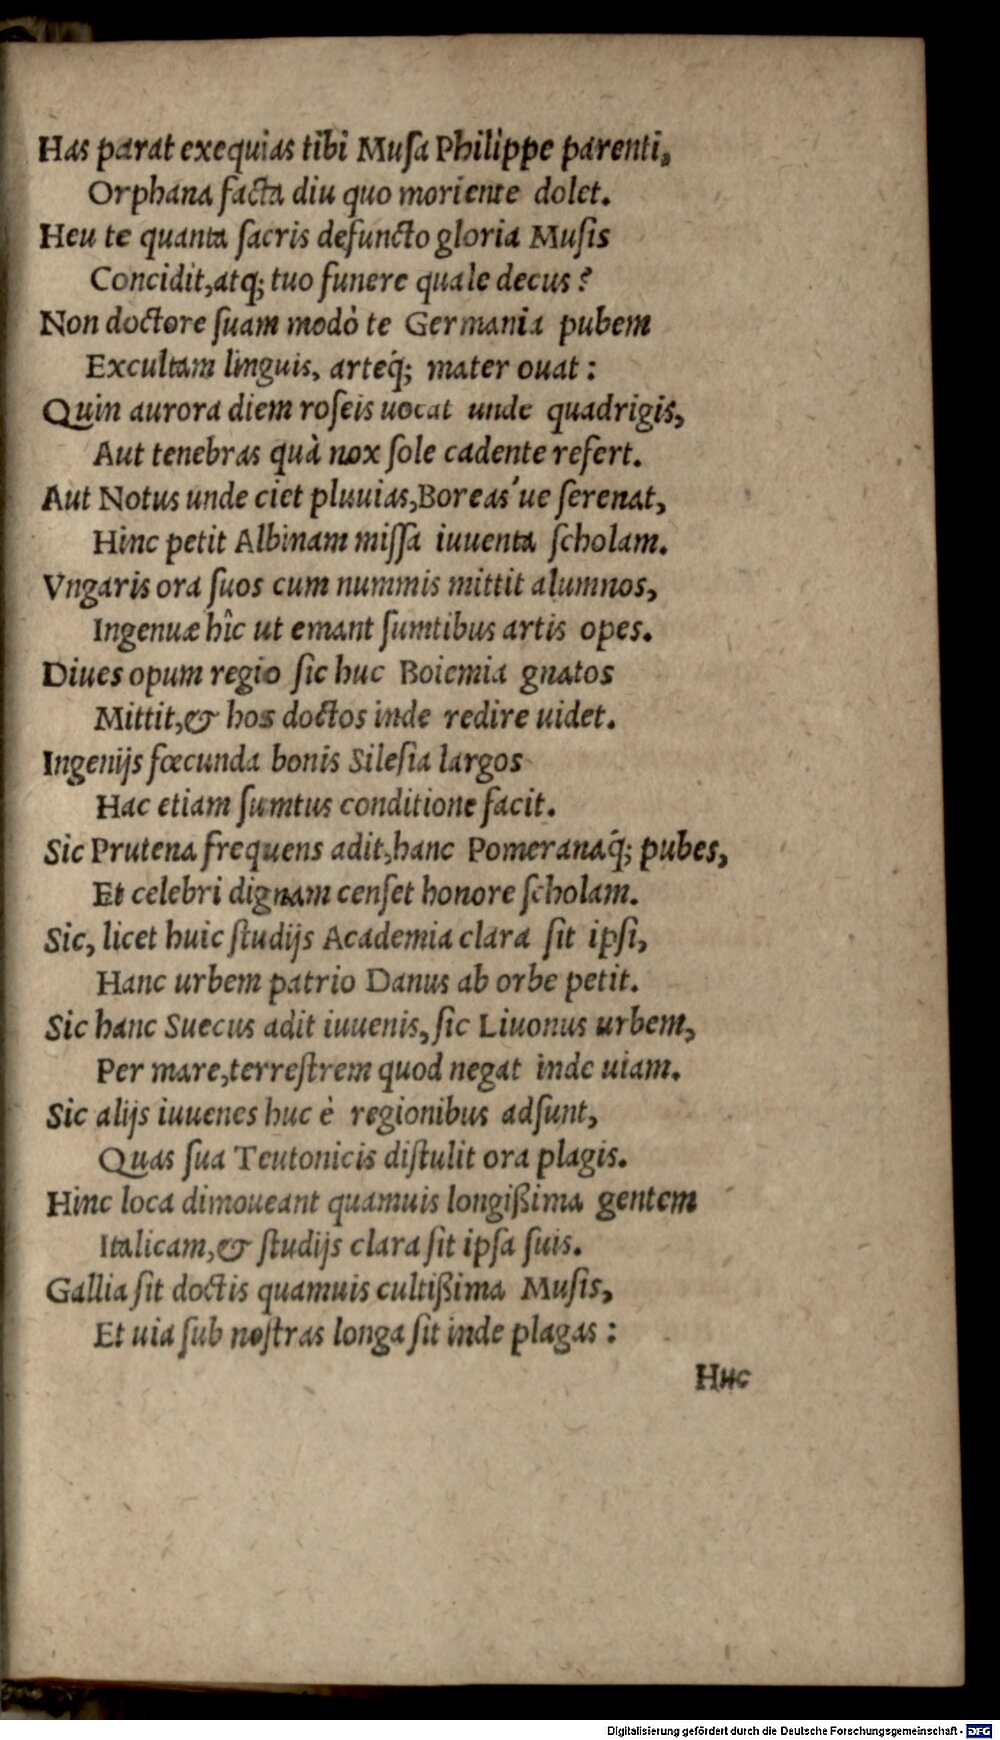 Has parat exequias tibi Muſa Philippe parenti,
Orphana facta diu quo moriente dolet.
Heu te quanta ſacris defuncto gloria Muſis
Concidit, atq; tuo funere quale decus?
Non doctore ſuam modò te Germania pubem
Excultam linguis, arteq́; mater ouat:
Quin aurora diem roſeis uocat unde quadrigis,
Aut tenebras quà nox ſole cadente refert.
Aut Notus unde ciet pluuias, Boreas'ue ſerenat,
Hinc petit Albinam miſſa iuuenta ſcholam.
Vngaris ora ſuos cum nummis mittit alumnos,
Ingenuæ hîc ut emant ſumtibus artis opes.
Diues opum regio ſic huc Boiemia gnatos
Mittit, & hos doctos inde redire uidet.
Ingenijs fœcunda bonis Sileſia largos
Hac etiam ſumtus conditione facit.
Sic Prutena frequens adit, hanc Pomeranaq́; pubes,
Et celebri dignam cenſet honore ſcholam.
Sic, licet huic ſtudijs Academia clara ſit ipſi,
Hanc urbem patrio Danus ab orbe petit.
Sic hanc Suecus adit iuuenis, ſic Liuonus urbem,
Per mare, terreſtrem quod negat inde uiam.
Sic alijs iuuenes huc è regionibus adſunt,
Quas ſua Teutonicis diſtulit ora plagis.
Hinc loca dimoueant quamuis longißima gentem
Italicam, & ſtudijs clara ſit ipſa ſuis.
Gallia ſit doctis quamuis cultißima Muſis,
Et uia ſub noſtras longa ſit inde plagas:
Huc
Digitalisierung gefördert durch die Deutsche Forschungsgemeinschaft - DFG